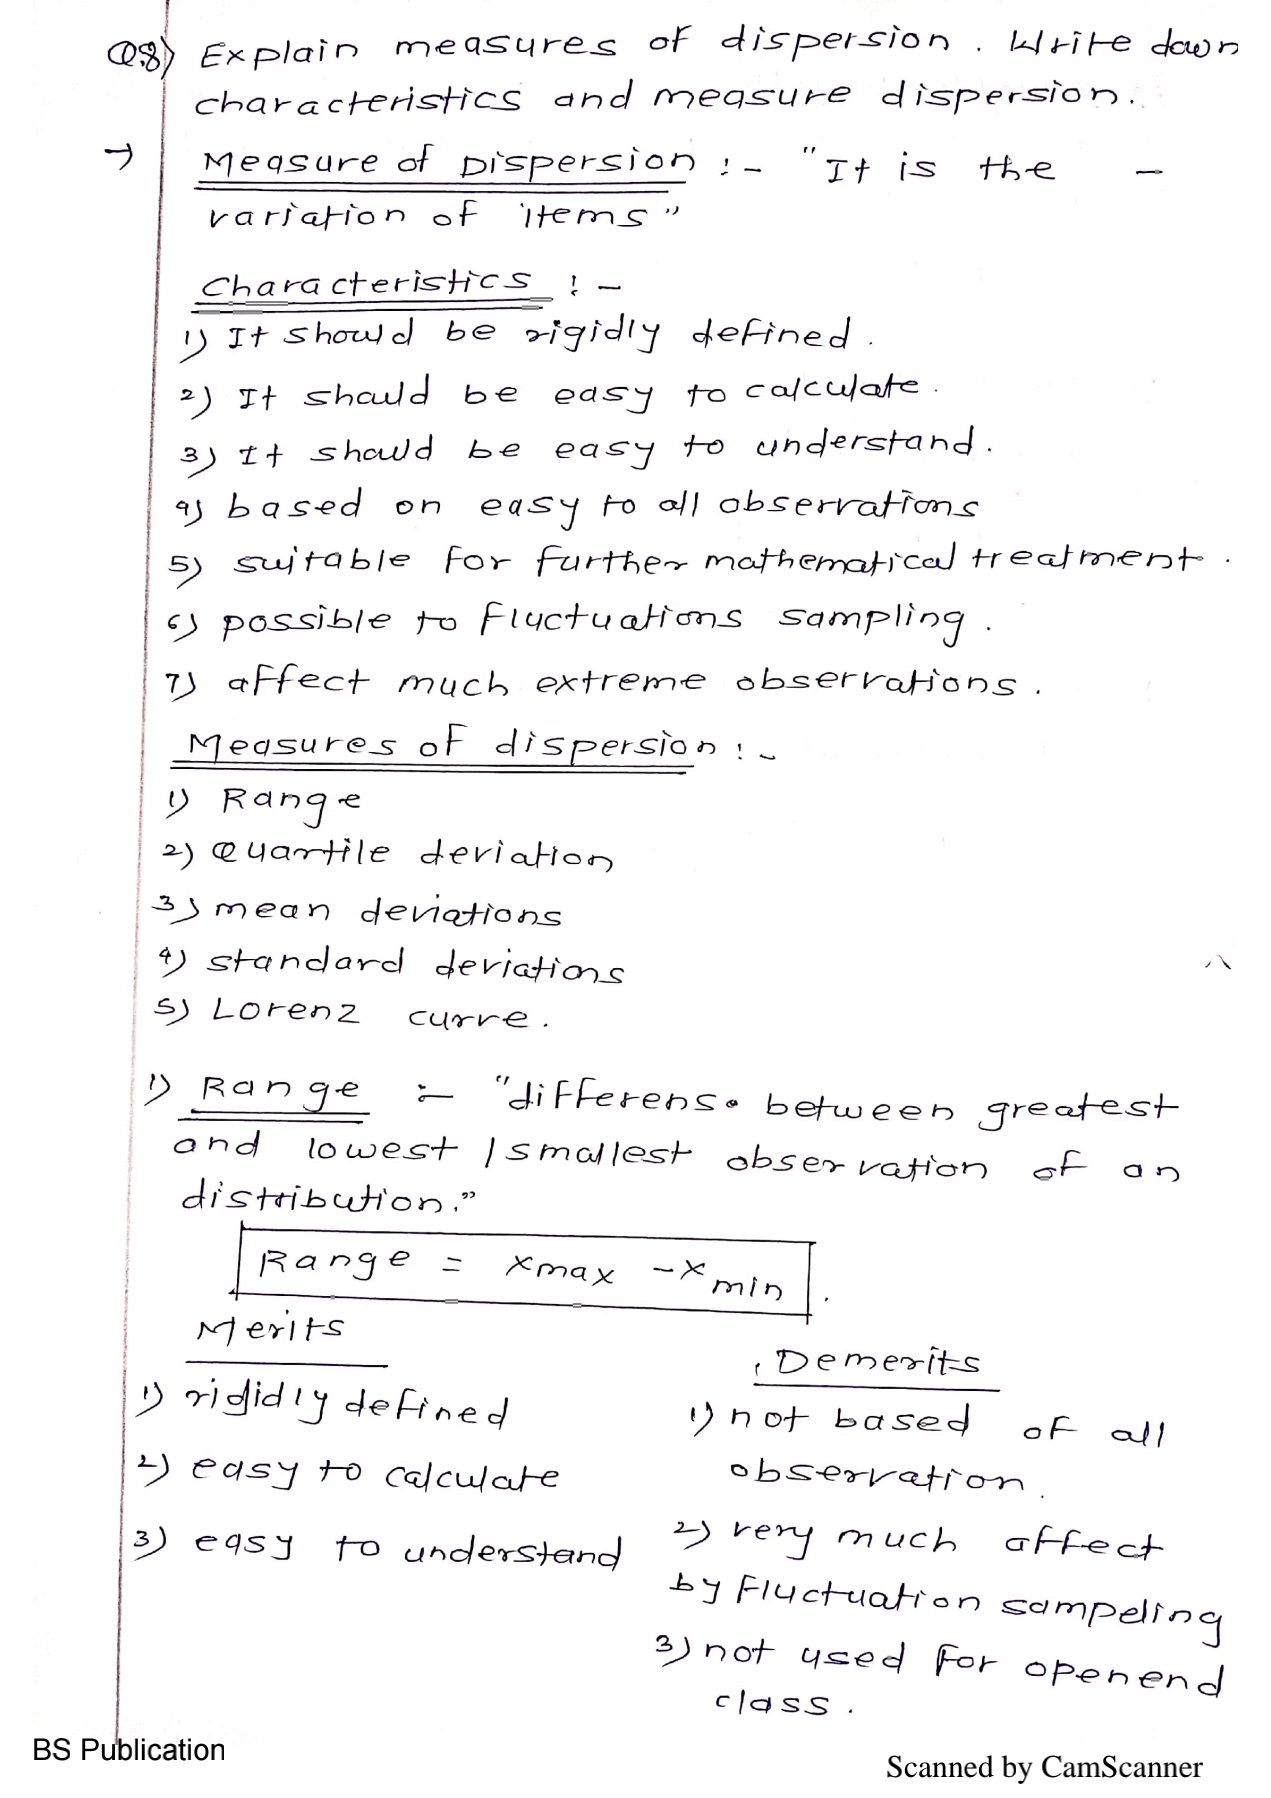 Q.8) Explain measures of dispersion. Write down
characteristics and measure dispersion.
→ Measure of Dispersion :- "It is the -
variation of items"
Characteristics :-
1) It should be rigidly defined.
2) It should be easy to calculate.
3) It should be easy to understand.
4) based on easy to all observations
5) suitable for further mathematical treatment.
6) possible to fluctuations sampling.
7) affect much extreme observations.
Measures of dispersion :-
1) Range
2) Quartile deviation
3) mean deviations
4) standard deviations
5) Lorenz curve.
1) Range :- "differens. between greatest
and lowest / smallest observation of an
distribution."
Range = xmax - xmin.
Merits
1) rigidly defined
2) easy to calculate
3) easy to understand
Demerits
1) not based of all
observation.
2) very much affect
by fluctuation sampeling
3) not used for openend
class.
BS Publication
Scanned by CamScanner